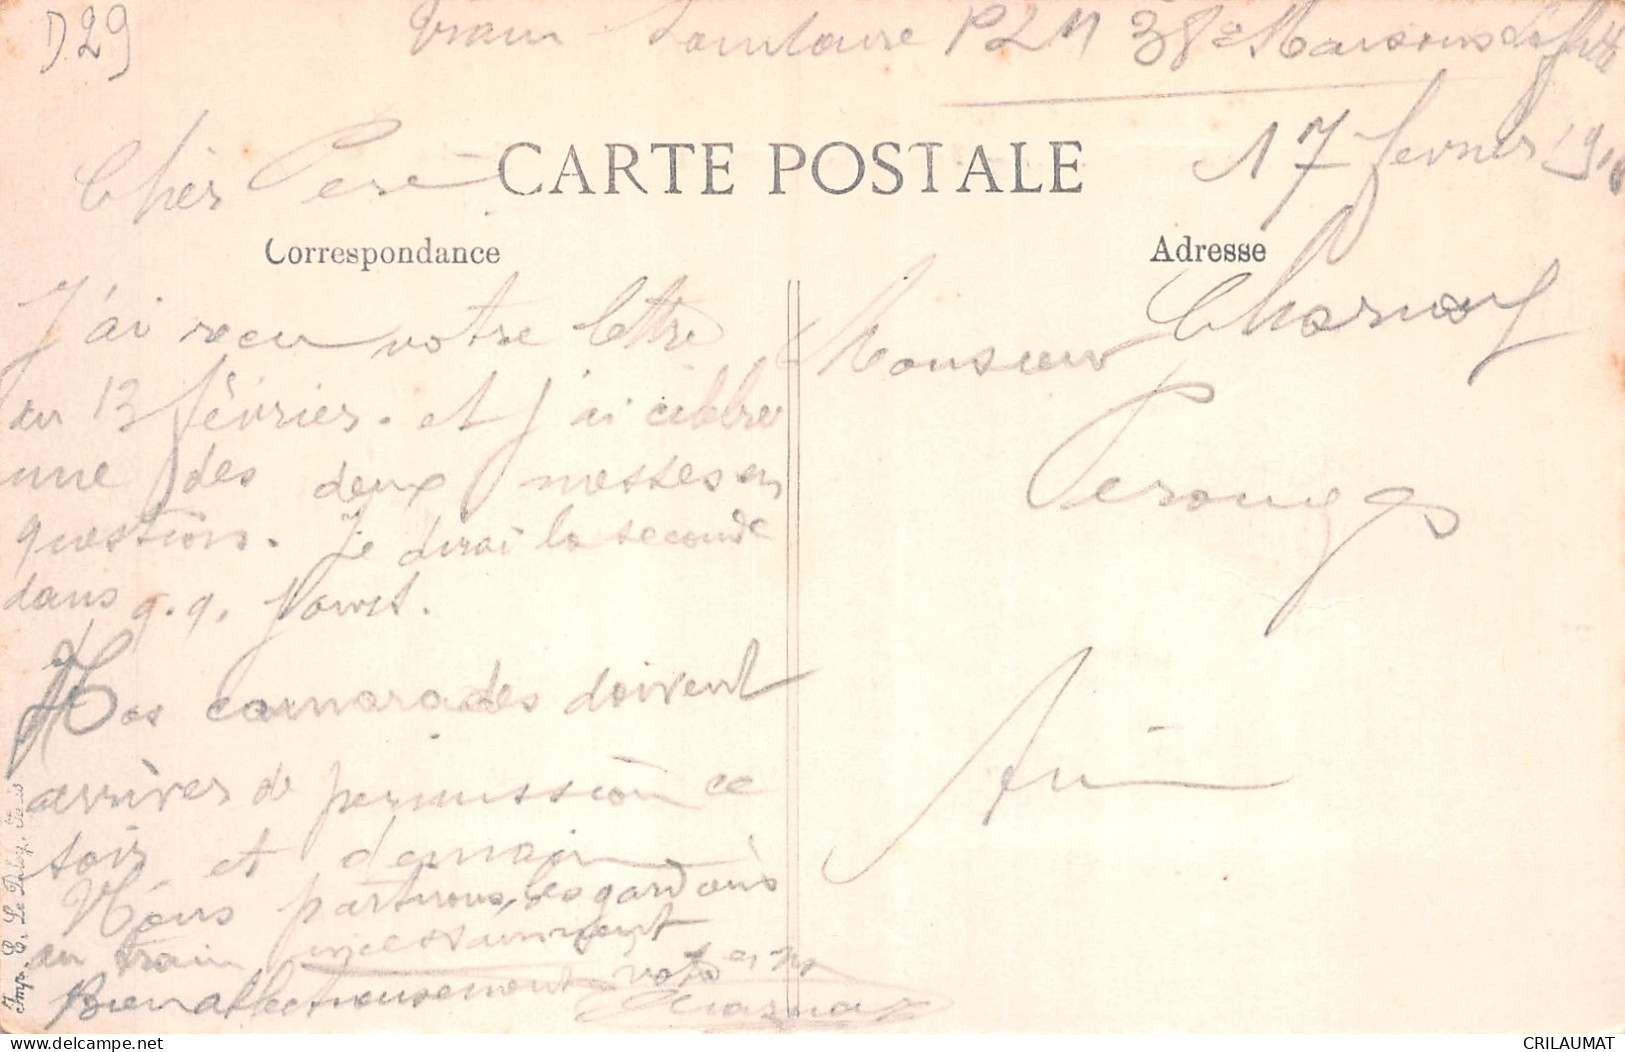 D29
Train Sanitaire PLM 38e Maisons Laffitte
17 février 191
Cher Père
CARTE POSTALE
Correspondance
Adresse
J'ai reçu votre lettre
du 13 février. et j'ai célébrer
une des deux messes en
question. Je dirai la seconde
dans q.q. jours.
Mes camarades doivent
arriver de permission ce
soir et demain
Nous partirons, regardons
au train incessamment
Bien affectueusement votre
Charnay
Monsieur Charnay
Perouges
Ain
Imp. E. Le Deley, Paris
CRILAUMAT